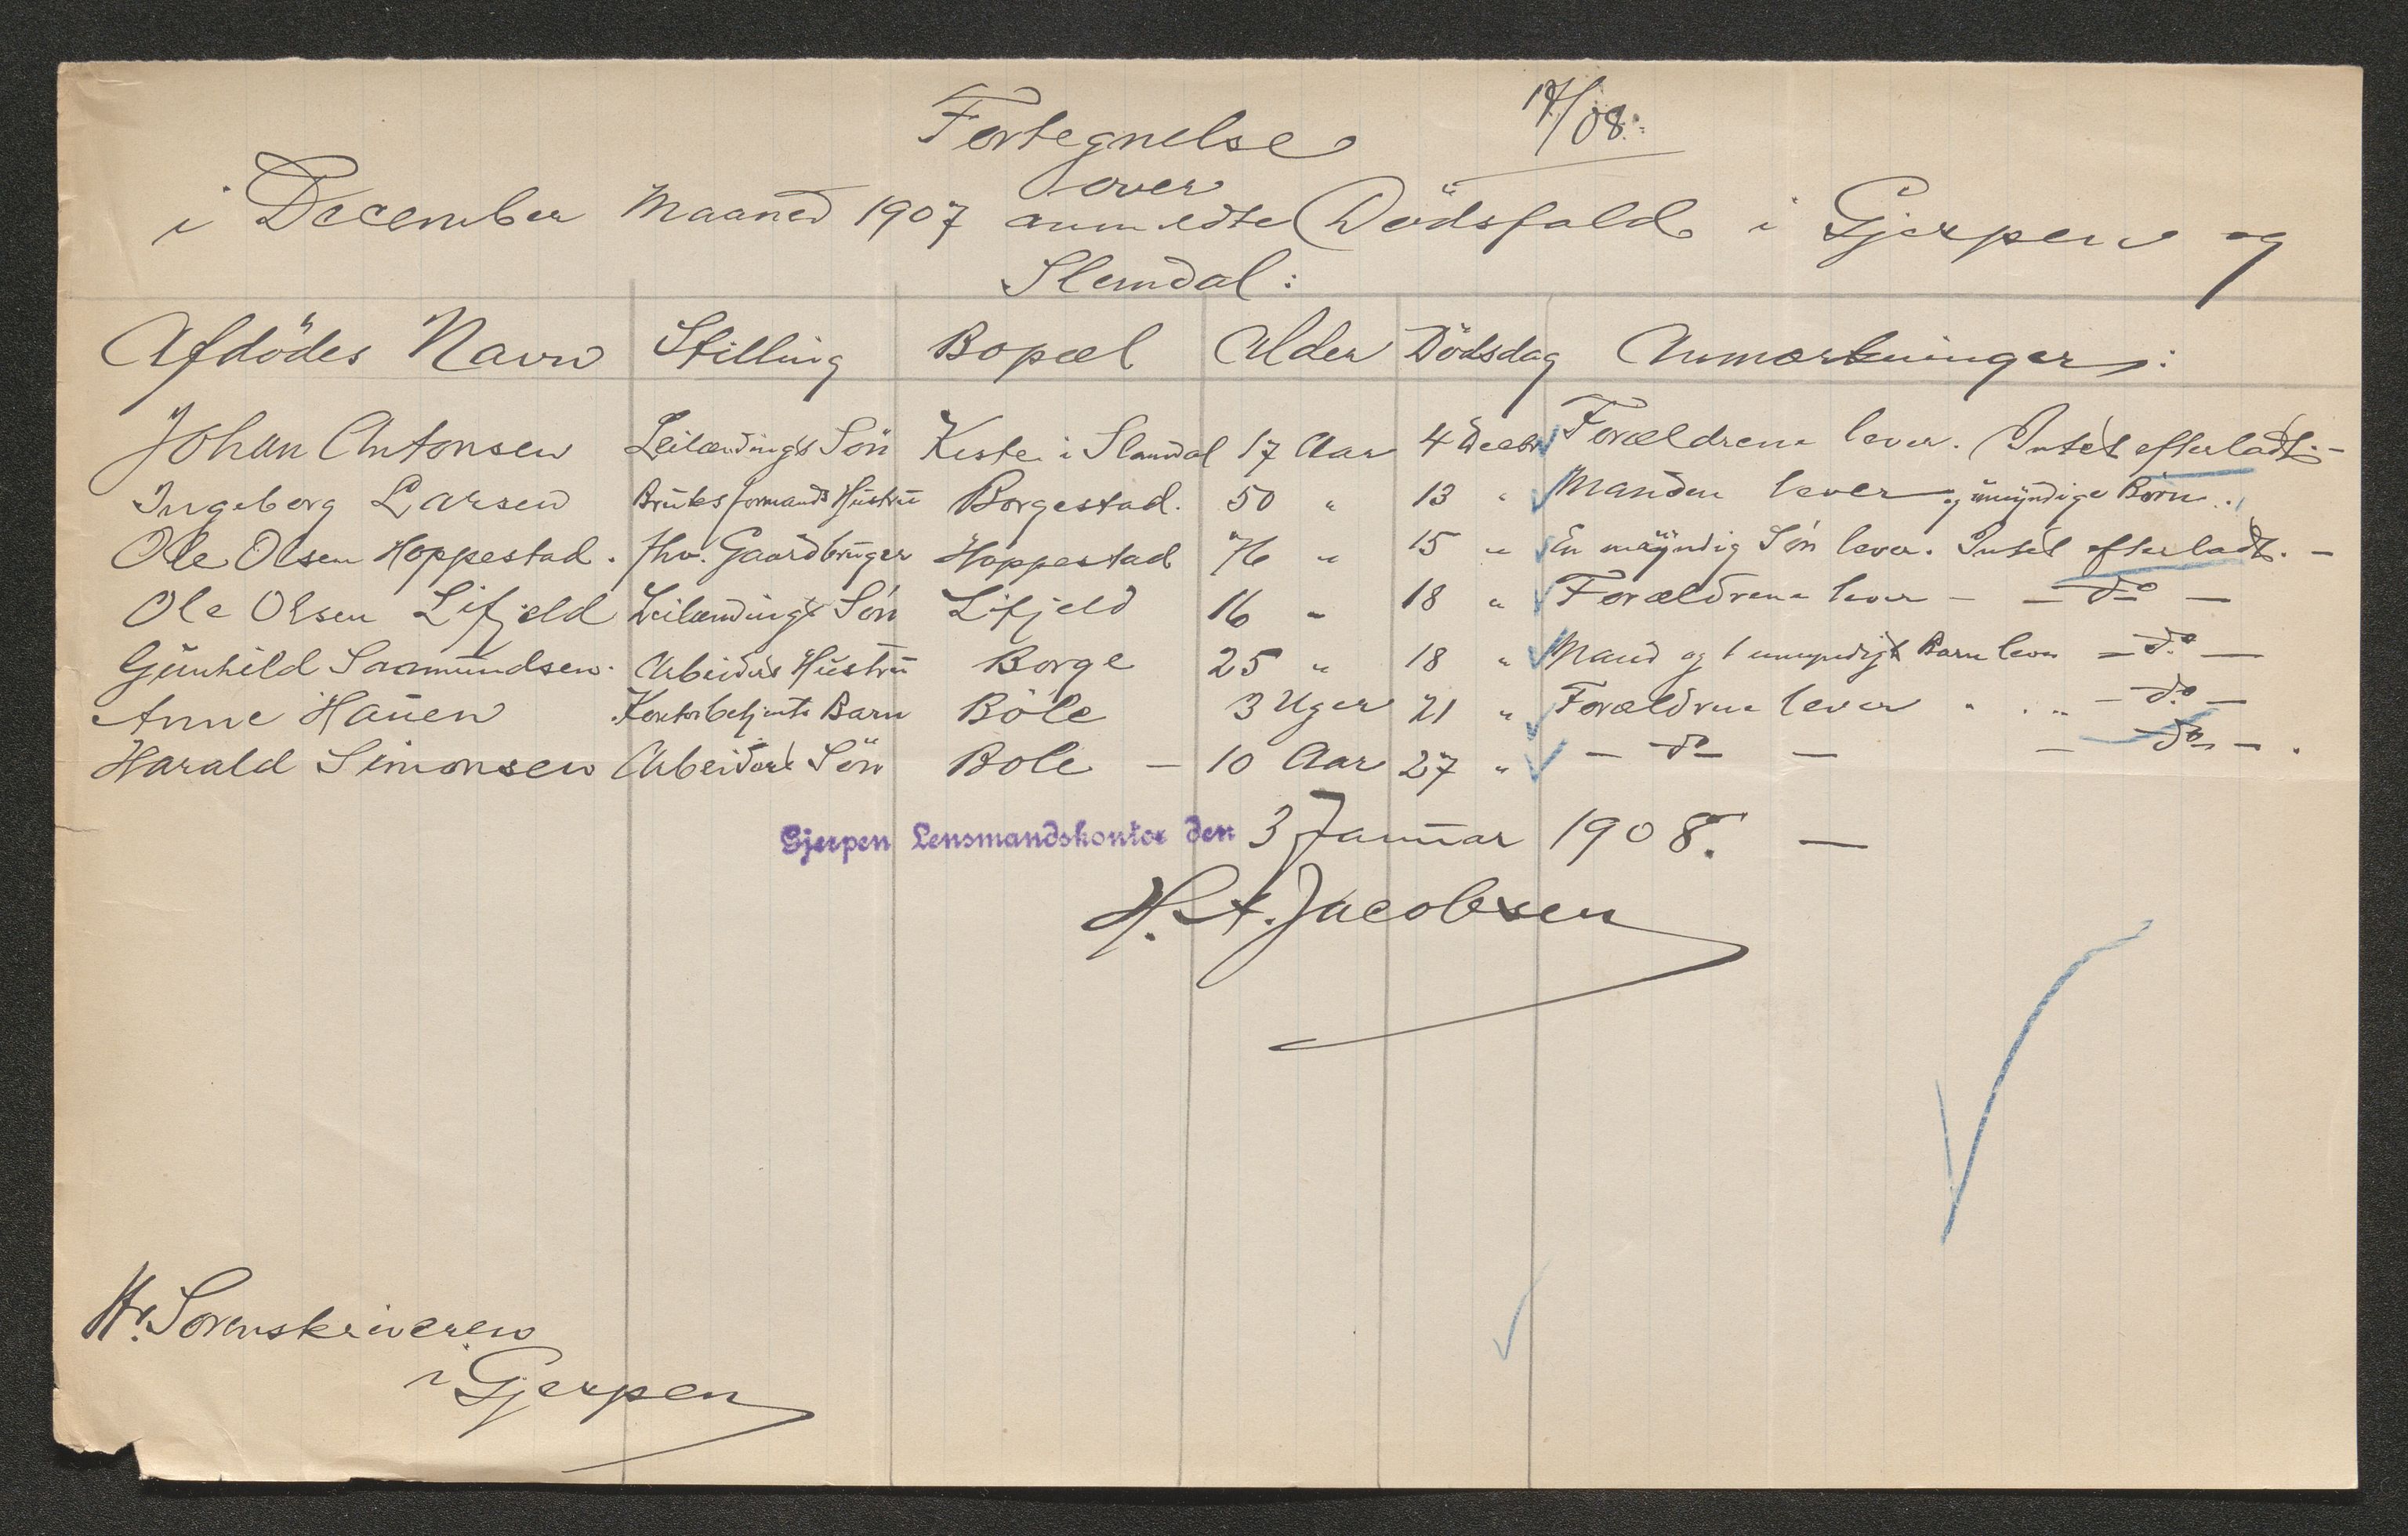 Fortegnelse
over
i December Maaned 1907 anmeldte Dødsfald i Gjerpen og
Slemdal:
Afdødes Navn Stilling Bopæl Alder Dødsdag Anmærkninger:
Johan Antonsen Leilændings Søn Kiste i Slemdal 17 Aar 4 Decbr Forældrene lever. Intet efterladt. -
Ingeborg Larsen Brugsformands Hustru Borgestad. 50 " 13 " Manden lever og umyndige Børn.
Ole Olsen Hoppestad. fhv. Gaardbruger Hoppestad 76 " 15 " En myndig Søn lever. Intet efterladt. -
Ole Olsen Lifjeld Leilændings Søn Lifjeld 16 " 18 " Forældrene lever - - do -
Gunhild Saamundsen. Arbeiders Hustru Borge 25 " 18 " Mand og 1 umyndigt Barn lever - do -
Anne Hauen Kontorbetjents Barn Bøle 3 Uger 21 " Forældrene lever " " - do -
Harald Simonsen Arbeiders Søn Bøle - 10 Aar 27 " - do - - do - .
Gjerpen Lensmandskontor den 3 Januar 1908. -
H. A. Jacobsen
Hr. Sorenskriveren
i Gjerpen